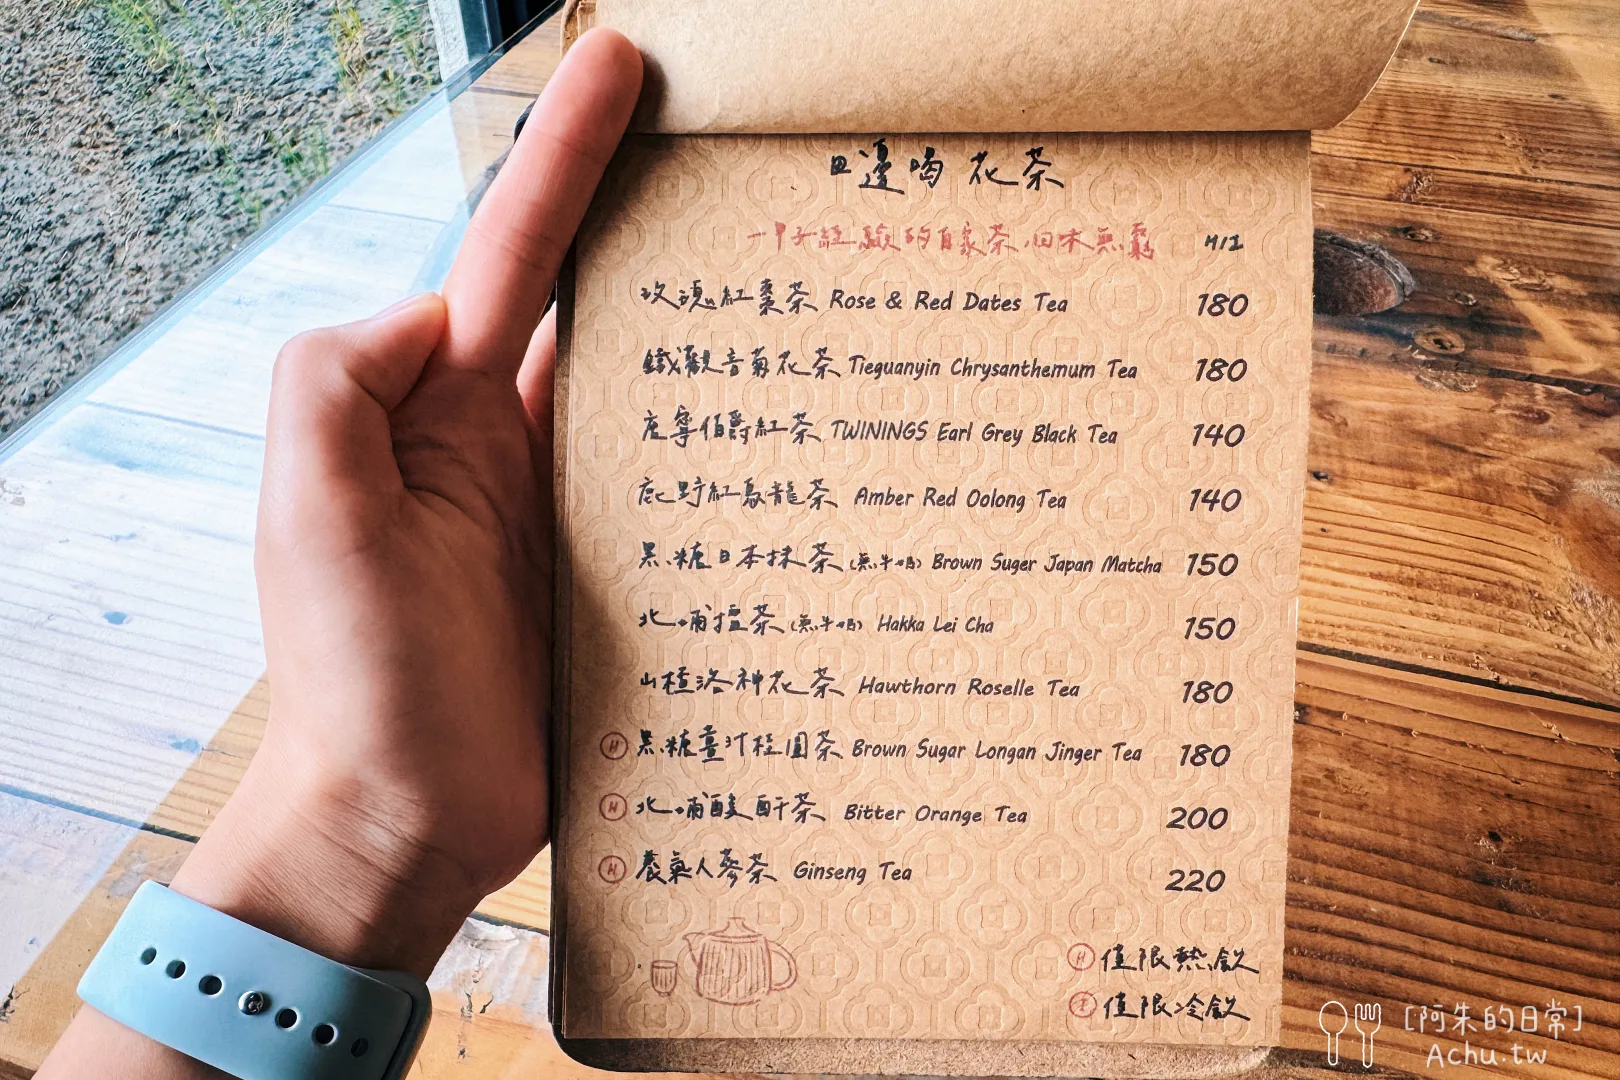 田邊喝 花茶
一甲子經驗的自家茶,回本無窮 H/I
玫瑰紅棗茶 Rose & Red Dates Tea 180
鐵觀音菊花茶 Tieguanyin Chrysanthemum Tea 180
唐寧伯爵紅茶 TWININGS Earl Grey Black Tea 140
鹿野紅烏龍茶 Amber Red Oolong Tea 140
黑糖日本抹茶(無牛奶) Brown Suger Japan Matcha 150
北埔擂茶(無牛奶) Hakka Lei Cha 150
山楂洛神花茶 Hawthorn Roselle Tea 180
H 黑糖薑汁桂圓茶 Brown Sugar Longan Jinger Tea 180
H 北埔酸酐茶 Bitter Orange Tea 200
H 養氣人蔘茶 Ginseng Tea 220
H 僅限熱飲
I 僅限冷飲
[阿朱的日常]
Achu.tw